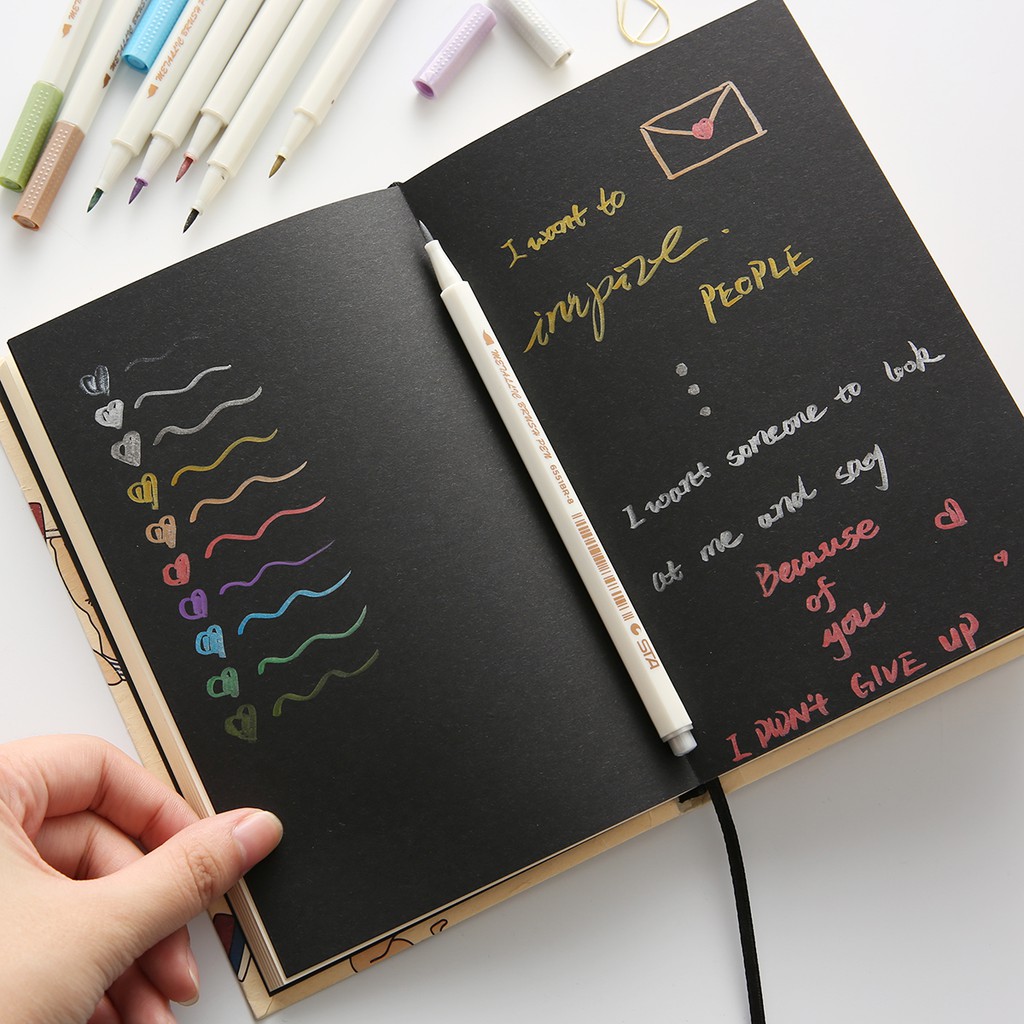 I want to
inspire.
PEOPLE
I want someone to look
at me and say
Because
of
you
I DIDN't GIVE UP
METALLIC MARKER PEN 6551BR-8
STA